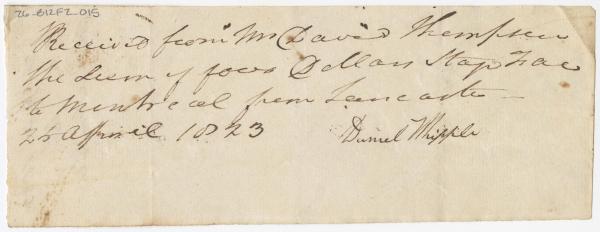 26-B12F2-015
Received from Mr David Thompson
the Sum of four Dollars Stage Fare
to Montreal from Lancaster –
24 April 1823 Daniel Whipple